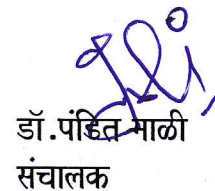 डॉ.पंडित माळी
संचालक